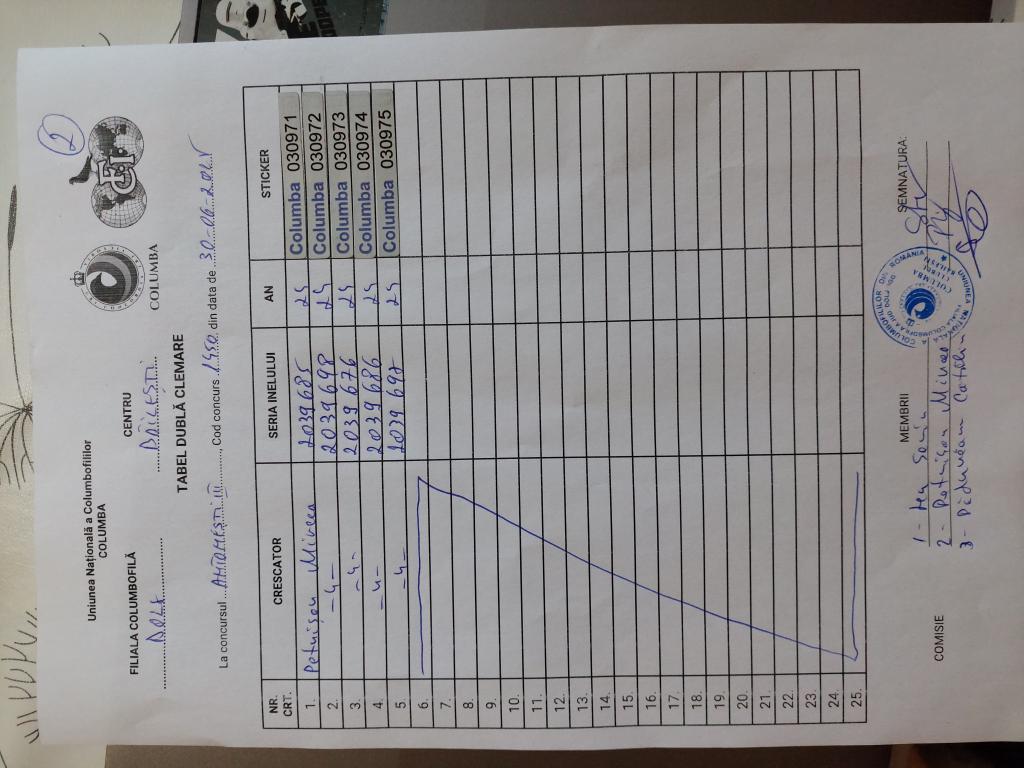 2
Uniunea Națională a Columbofililor
COLUMBA
COLUMBA
FCI
FILIALA COLUMBOFILĂ
CENTRU
DOLJ
BĂILEȘTI
TABEL DUBLĂ CLEMARE
La concursul ... III ..., Cod concurs 1450 din data de 30-06-202
NR. CRT. CRESCATOR SERIA INELULUI AN STICKER
1. Petrișor Mircea 2039685 24 Columba 030971
2. -4- 2039698 24 Columba 030972
3. -4- 2039676 24 Columba 030973
4. -4- 2039686 24 Columba 030974
5. -4- 2039697 24 Columba 030975
6.
7.
8.
9.
10.
11.
12.
13.
14.
15.
16.
17.
18.
19.
20.
21.
22.
23.
24.
25.
COMISIE
MEMBRII
SEMNATURA:
1-
2- Petrișor Mircea
3- Păduream Catalin